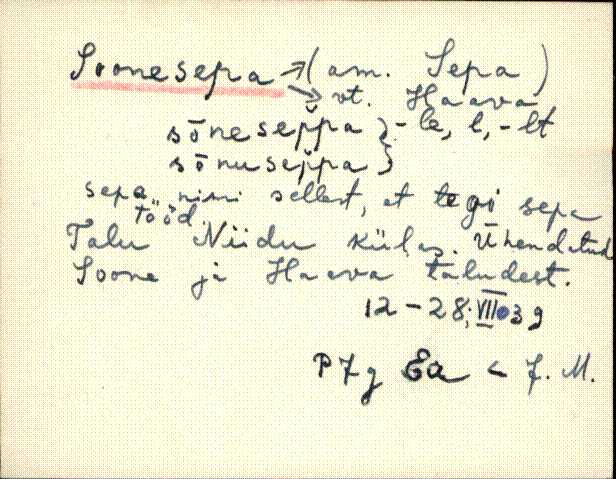 Soonesepa → (am. Sepa)
→ vt. Haava
sōnesep̌pa } -le, l, -lt
sōnusep̌pa }
sepa nimi sellest, et tegi sepa
tööd.
Talu Niidu külas. Ühendatud
Soone ja Haava taludest.
12-28. VII 39
PJg Ea < J. M.